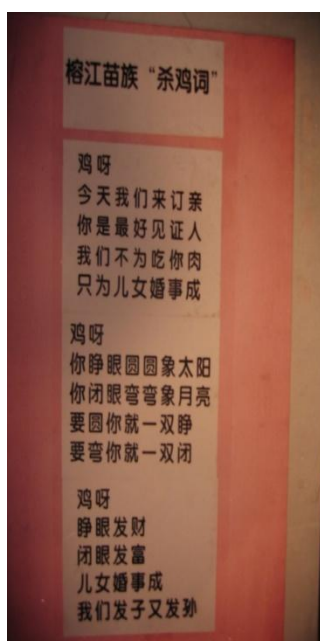 榕江苗族“杀鸡词”
鸡呀
今天我们来订亲
你是最好见证人
我们不为吃你肉
只为儿女婚事成
鸡呀
你睁眼圆圆象太阳
你闭眼弯弯象月亮
要圆你就一双睁
要弯你就一双闭
鸡呀
睁眼发财
闭眼发富
儿女婚事成
我们发子又发孙